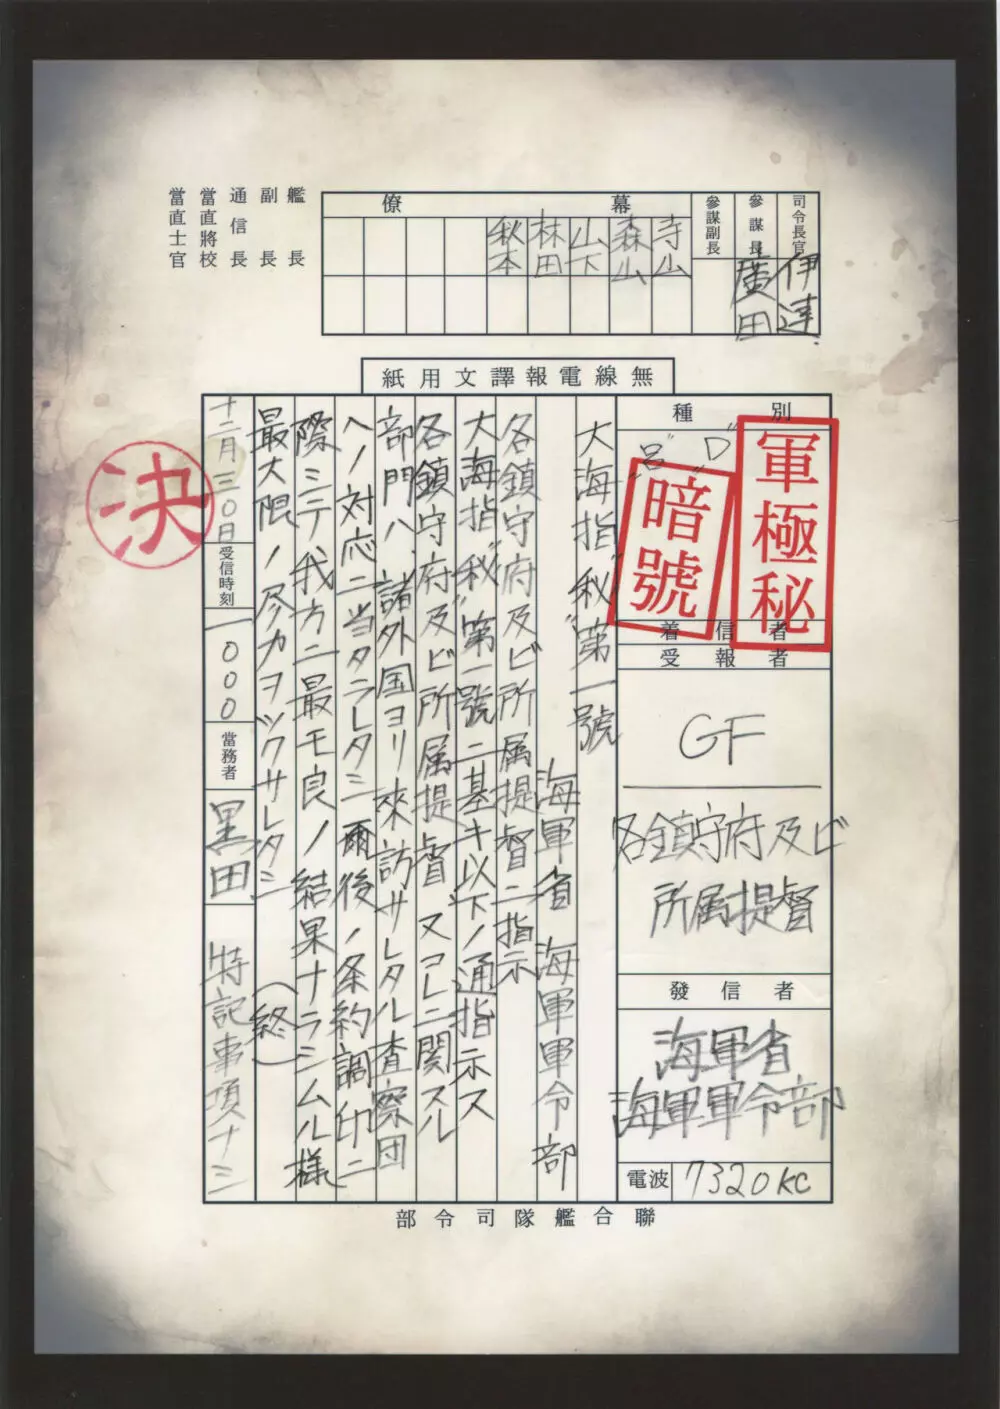 司令長官
伊達
參謀長
廣田
參謀副長
幕僚
寺山
森山
山下
林田
秋本
艦長
副長
通信長
當直將校
當直士官
無線電報譯文用紙
種別
"D"
"呂"
軍極秘
暗號
着信者
受報者
GF
各鎮守府及ビ
所属提督
發信者
海軍省
海軍軍令部
電波
7320KC
大海指"秘"第一號
海軍省 海軍軍令部
各鎮守府及ビ所属提督ニ指示
大海指"秘"第一號ニ基キ以下ノ通指示ス
各鎮守府及ビ所属提督、又コレニ関スル
部門ハ、諸外国ヨリ來訪サレタル査察団
ヘノ対応ニ当タラレタシ 爾後ノ条約調印ニ
際シテ我方ニ最モ良ノ結果ナラシムル様
最大限ノ尽力ヲツクサレタシ (終)
十二月三〇日
受信時刻
一000
當務者
黒田
特記事項ナシ
決
聯合艦隊司令部